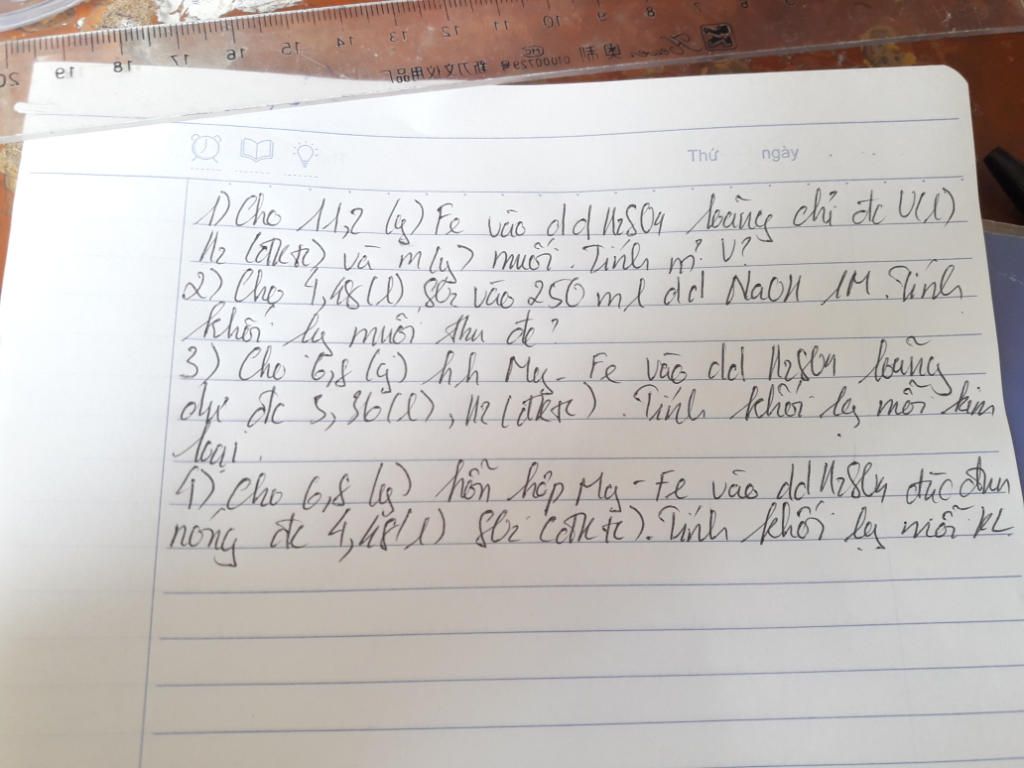 20 19 18 17 16 15 14 13 12 11 10 9 8 7 6 5
Thứ ngày
1) Cho 11,2 (g) Fe vào dd H2SO4 loãng chỉ đc V(l)
H2 (đktc) và m(g) muối. Tính m? V?
2) Cho 4,48(l) SO2 vào 250 ml dd NaOH 1M. Tính
khối lg muối thu đc?
3) Cho 6,8 (g) hh Mg - Fe vào dd H2SO4 loãng
dư đc 3,36(l), H2 (đktc). Tính khối lg mỗi kim
loại.
4) Cho 6,8 (g) hỗn hợp Mg - Fe vào dd H2SO4 đặc đun
nóng đc 4,48(l) SO2 (đktc). Tính khối lg mỗi KL